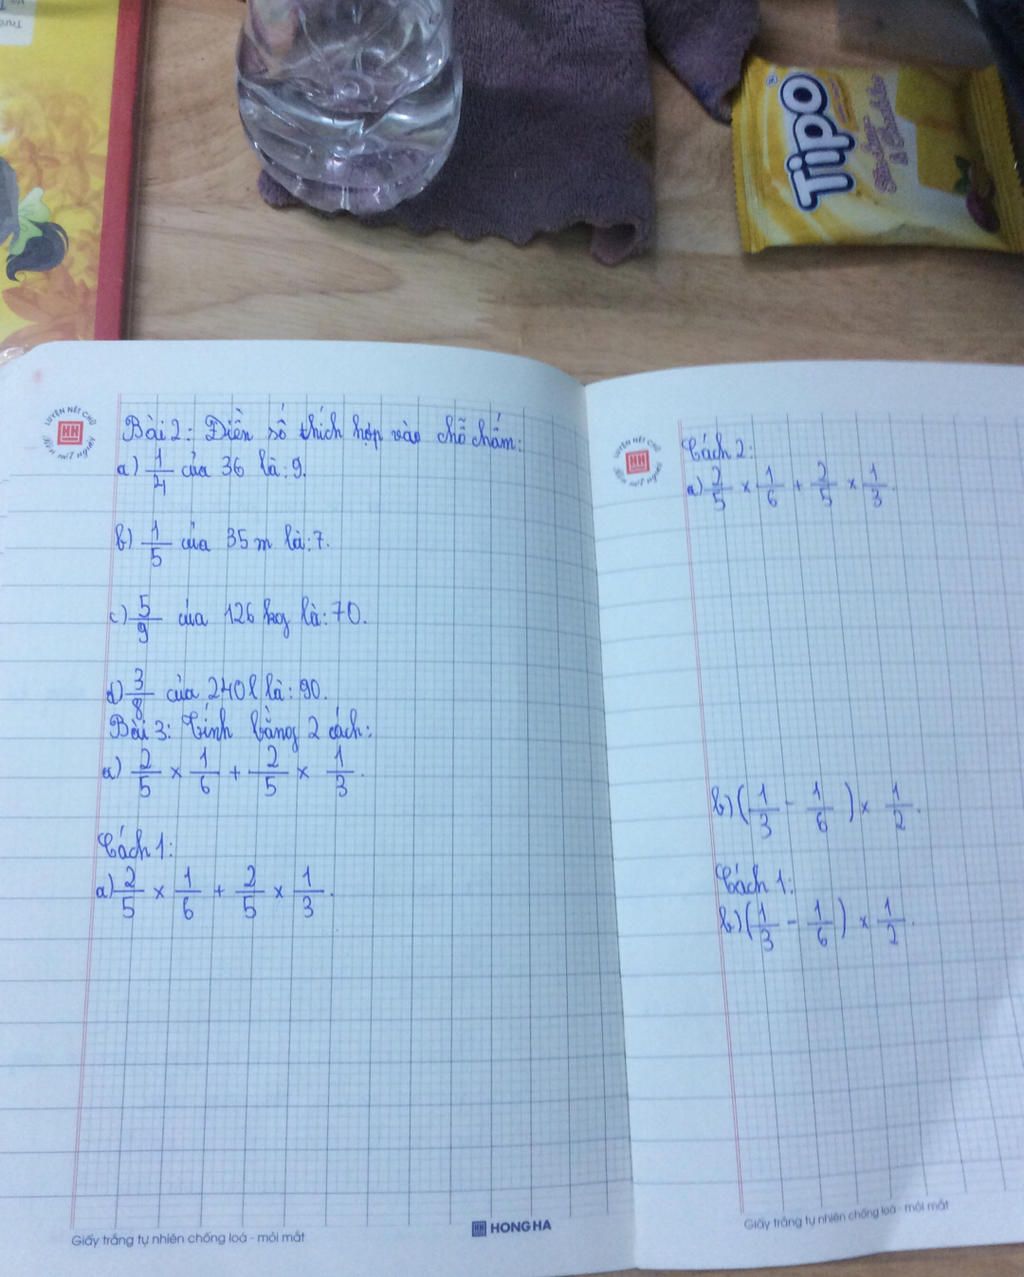 Tipo
LUYỆN NÉT CHỮ
HH
Rèn nết người
Bài 2: Điền số thích hợp vào chỗ chấm:
a) 1/4 của 36 là: 9.
b) 1/5 của 35 m là: 7.
c) 5/9 của 126 kg là: 70.
d) 3/8 của 240 l là: 90.
Bài 3: Tính bằng 2 cách:
a) 2/5 × 1/6 + 2/5 × 1/3.
Cách 1:
a) 2/5 × 1/6 + 2/5 × 1/3.
Giấy trắng tự nhiên chống loá - mỏi mắt
HH HONG HA
LUYỆN NÉT CHỮ
HH
Rèn nết người
Cách 2:
a) 2/5 × 1/6 + 2/5 × 1/3.
b) (1/3 - 1/6) × 1/2.
Cách 1:
b) (1/3 - 1/6) × 1/2.
Giấy trắng tự nhiên chống loá - mỏi mắt